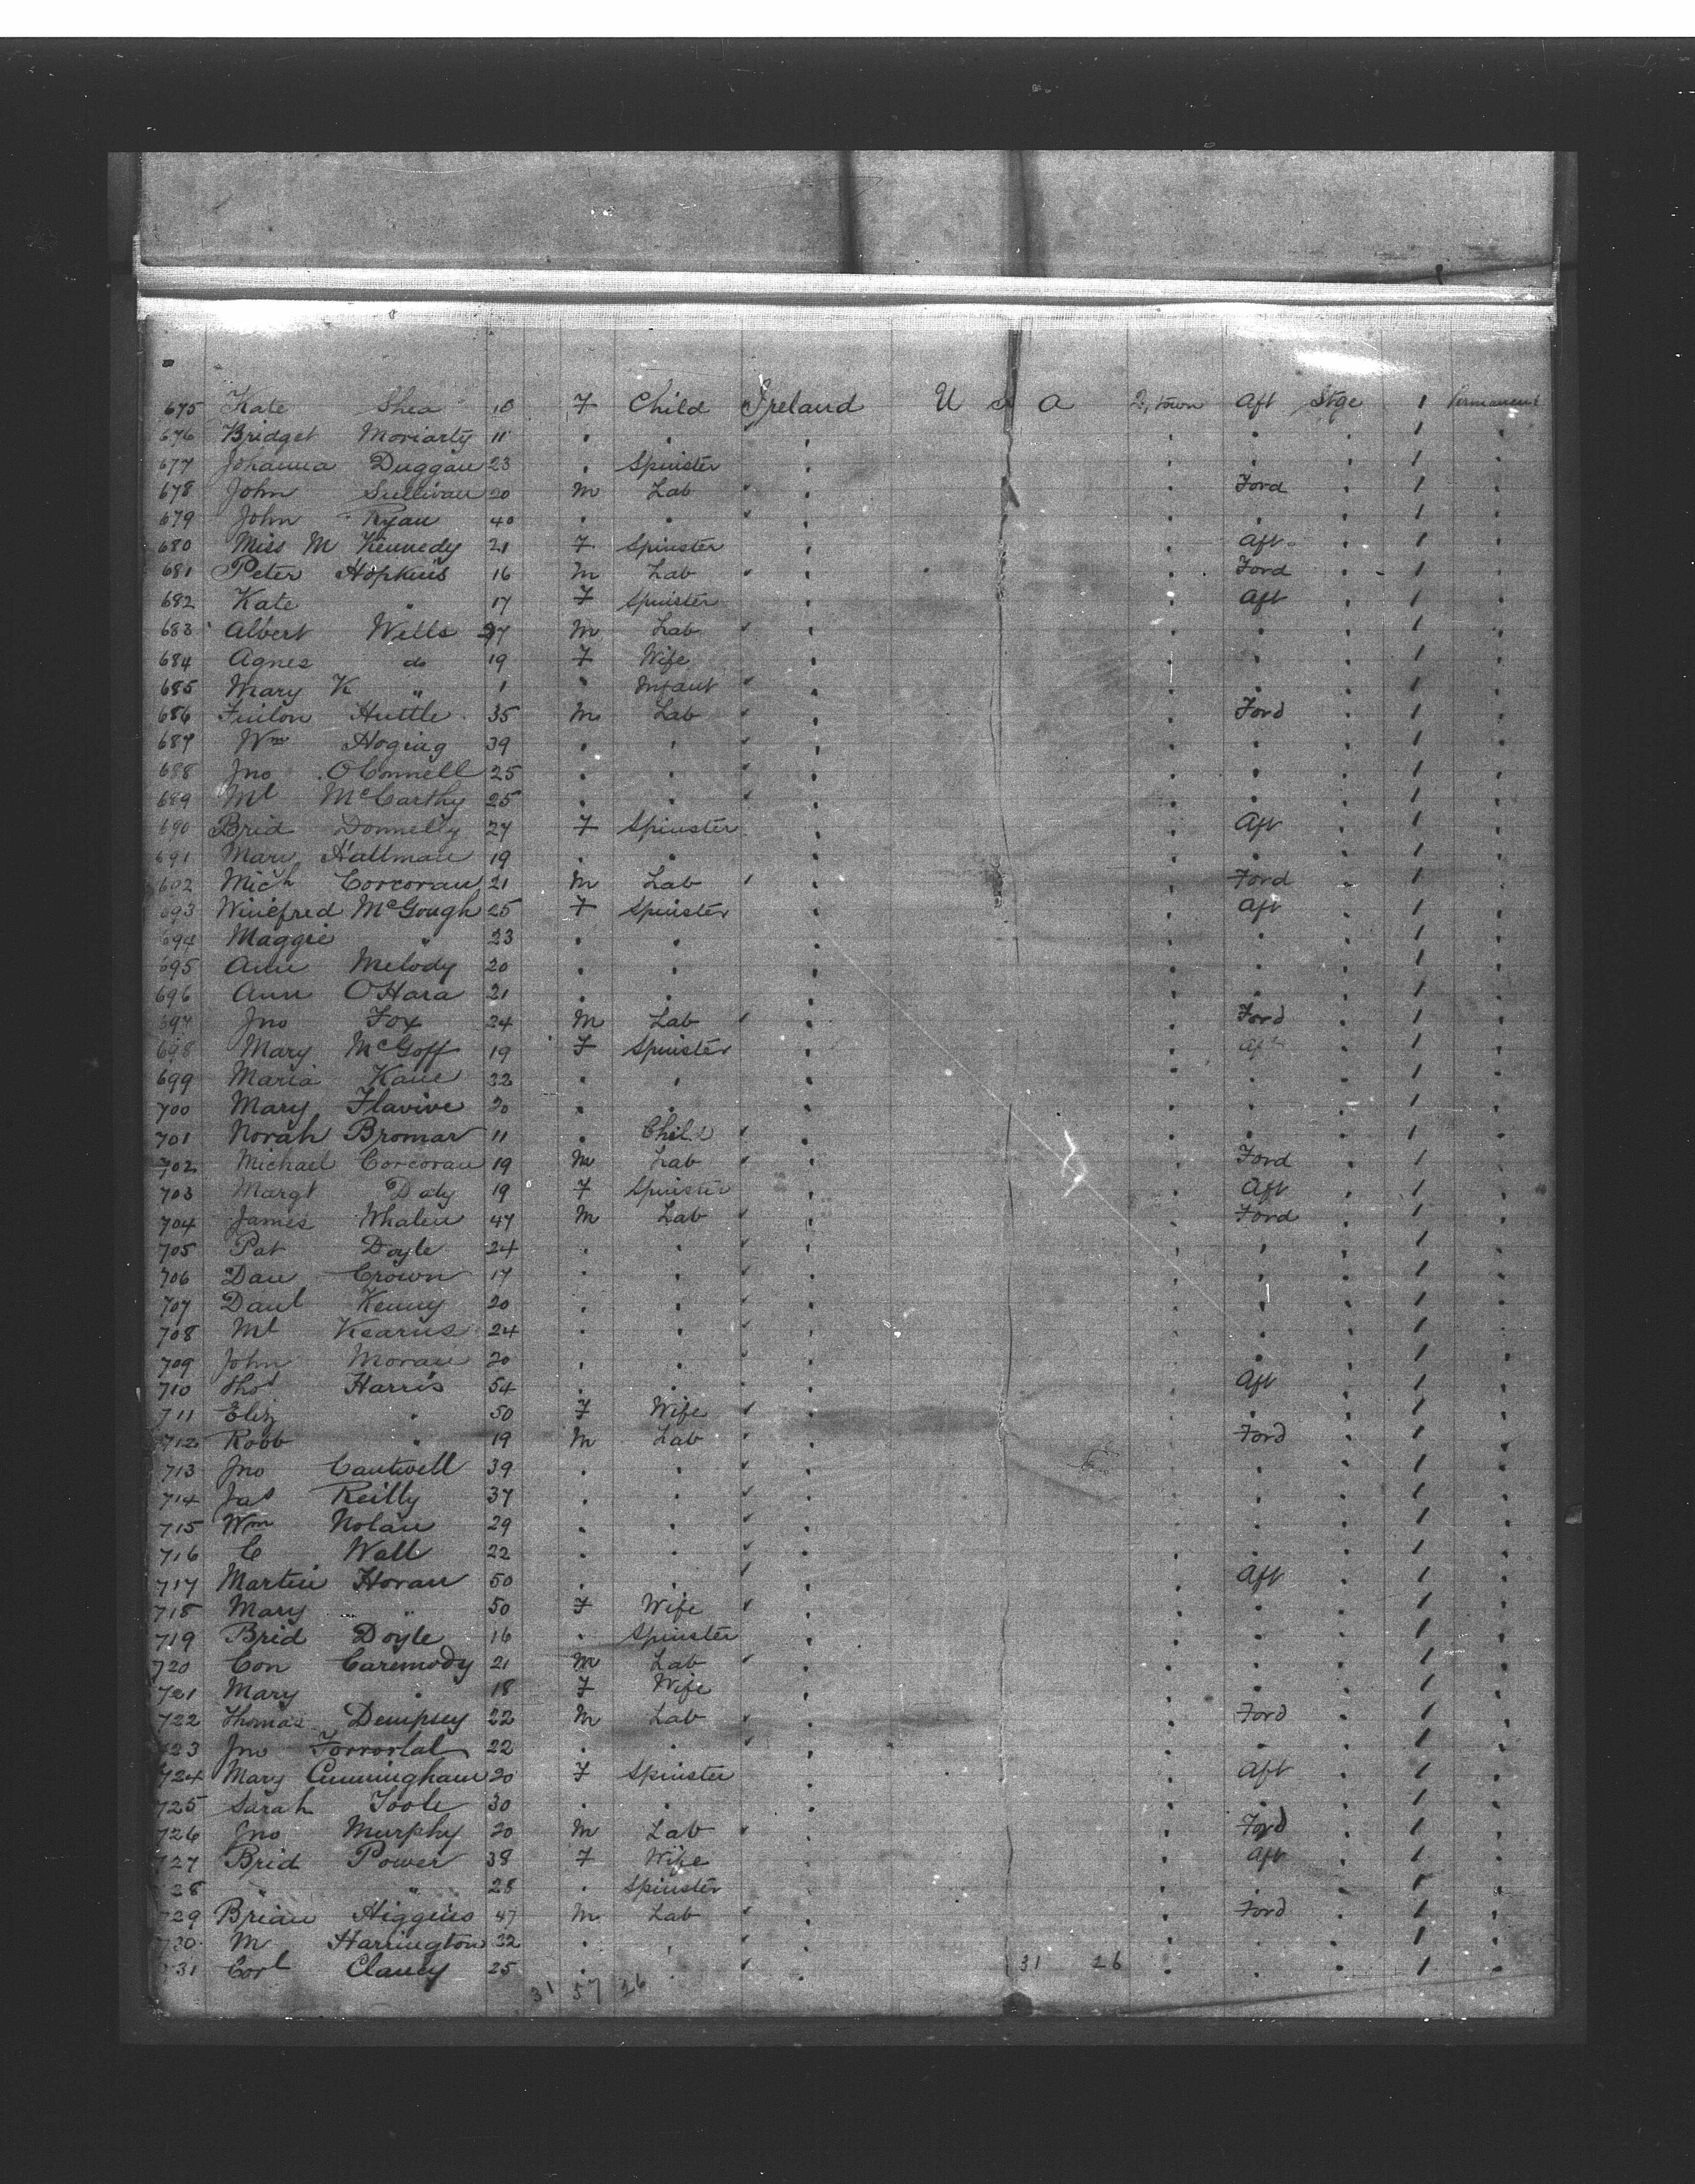 675 Kate Shea 10 F Child Ireland U S A Q.town Aft Stge 1 Permanent
676 Bridget Moriarty 11 " " " " " " 1 "
677 Johanna Duggan 23 " Spinster " " " " 1 "
678 John Sullivan 20 M Lab " " Ford " 1 "
679 John Ryan 40 " " " " " " 1 "
680 Miss M Kennedy 21 F Spinster " " Aft " 1 "
681 Peter Hopkins 16 M Lab " " Ford " 1 "
682 Kate " 17 F Spinster " " Aft " 1 "
683 Albert Wells 27 M Lab " " " " 1 "
684 Agnes do 19 F Wife " " " " 1 "
685 Mary K " 1 " Infant " " " " 1 "
686 Finlon Huttle 35 M Lab " " Ford " 1 "
687 Wm Hoging 39 " " " " " " 1 "
688 Jno O'Connell 25 " " " " " " 1 "
689 Ml McCarthy 25 " " " " " " 1 "
690 Brid Donnelly 27 F Spinster " " Aft " 1 "
691 Mary Hallman 19 " " " " " " 1 "
692 Mich Corcoran 21 M Lab " " Ford " 1 "
693 Winefred McGough 25 F Spinster " " Aft " 1 "
694 Maggie " 23 " " " " " " 1 "
695 Ann Melody 20 " " " " " " 1 "
696 Ann O'Hara 21 " " " " " " 1 "
697 Jno Fox 24 M Lab " " Ford " 1 "
698 Mary McGoff 19 F Spinster " " Aft " 1 "
699 Maria Kane 32 " " " " " " 1 "
700 Mary Flavive 20 " " " " " " 1 "
701 Norah Bromar 11 " Child " " " " 1 "
702 Michael Corcoran 19 M Lab " " Ford " 1 "
703 Margt Daly 19 F Spinster " " Aft " 1 "
704 James Whalen 47 M Lab " " Ford " 1 "
705 Pat Doyle 24 " " " " " " 1 "
706 Dan Crown 17 " " " " " " 1 "
707 Danl Kenny 20 " " " " " " 1 "
708 Ml Kearns 24 " " " " " " 1 "
709 John Moran 20 " " " " " " 1 "
710 Thos Harris 54 " " " " Aft " 1 "
711 Eliz " 50 F Wife " " " " 1 "
712 Robb " 19 M Lab " " Ford " 1 "
713 Jno Cantwell 39 " " " " " " 1 "
714 Jas Reilly 37 " " " " " " 1 "
715 Wm Nolan 29 " " " " " " 1 "
716 C Wall 22 " " " " " " 1 "
717 Martin Horan 50 " " " " Aft " 1 "
718 Mary " 50 F Wife " " " " 1 "
719 Brid Doyle 16 " Spinster " " " " 1 "
720 Con Caremody 21 M Lab " " " " 1 "
721 Mary " 18 F Wife " " " " 1 "
722 Thomas Dempsey 22 M Lab " " Ford " 1 "
723 Jno Torrorlal 22 " " " " " " 1 "
724 Mary Cunningham 20 F Spinster " " Aft " 1 "
725 Sarah Toole 30 " " " " " " 1 "
726 Jno Murphy 20 M Lab " " Ford " 1 "
727 Brid Power 38 F Wife " " Aft " 1 "
28 " " 28 " Spinster " " " " 1 "
729 Brian Higgins 47 M Lab " " Ford " 1 "
730 M Harrington 32 " " " " " " 1 "
731 Corl Clancy 25 " " " 31 26 " " " 1 "
31 57 26